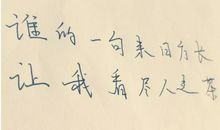 谁的一句来日方长
让我看尽人走茶